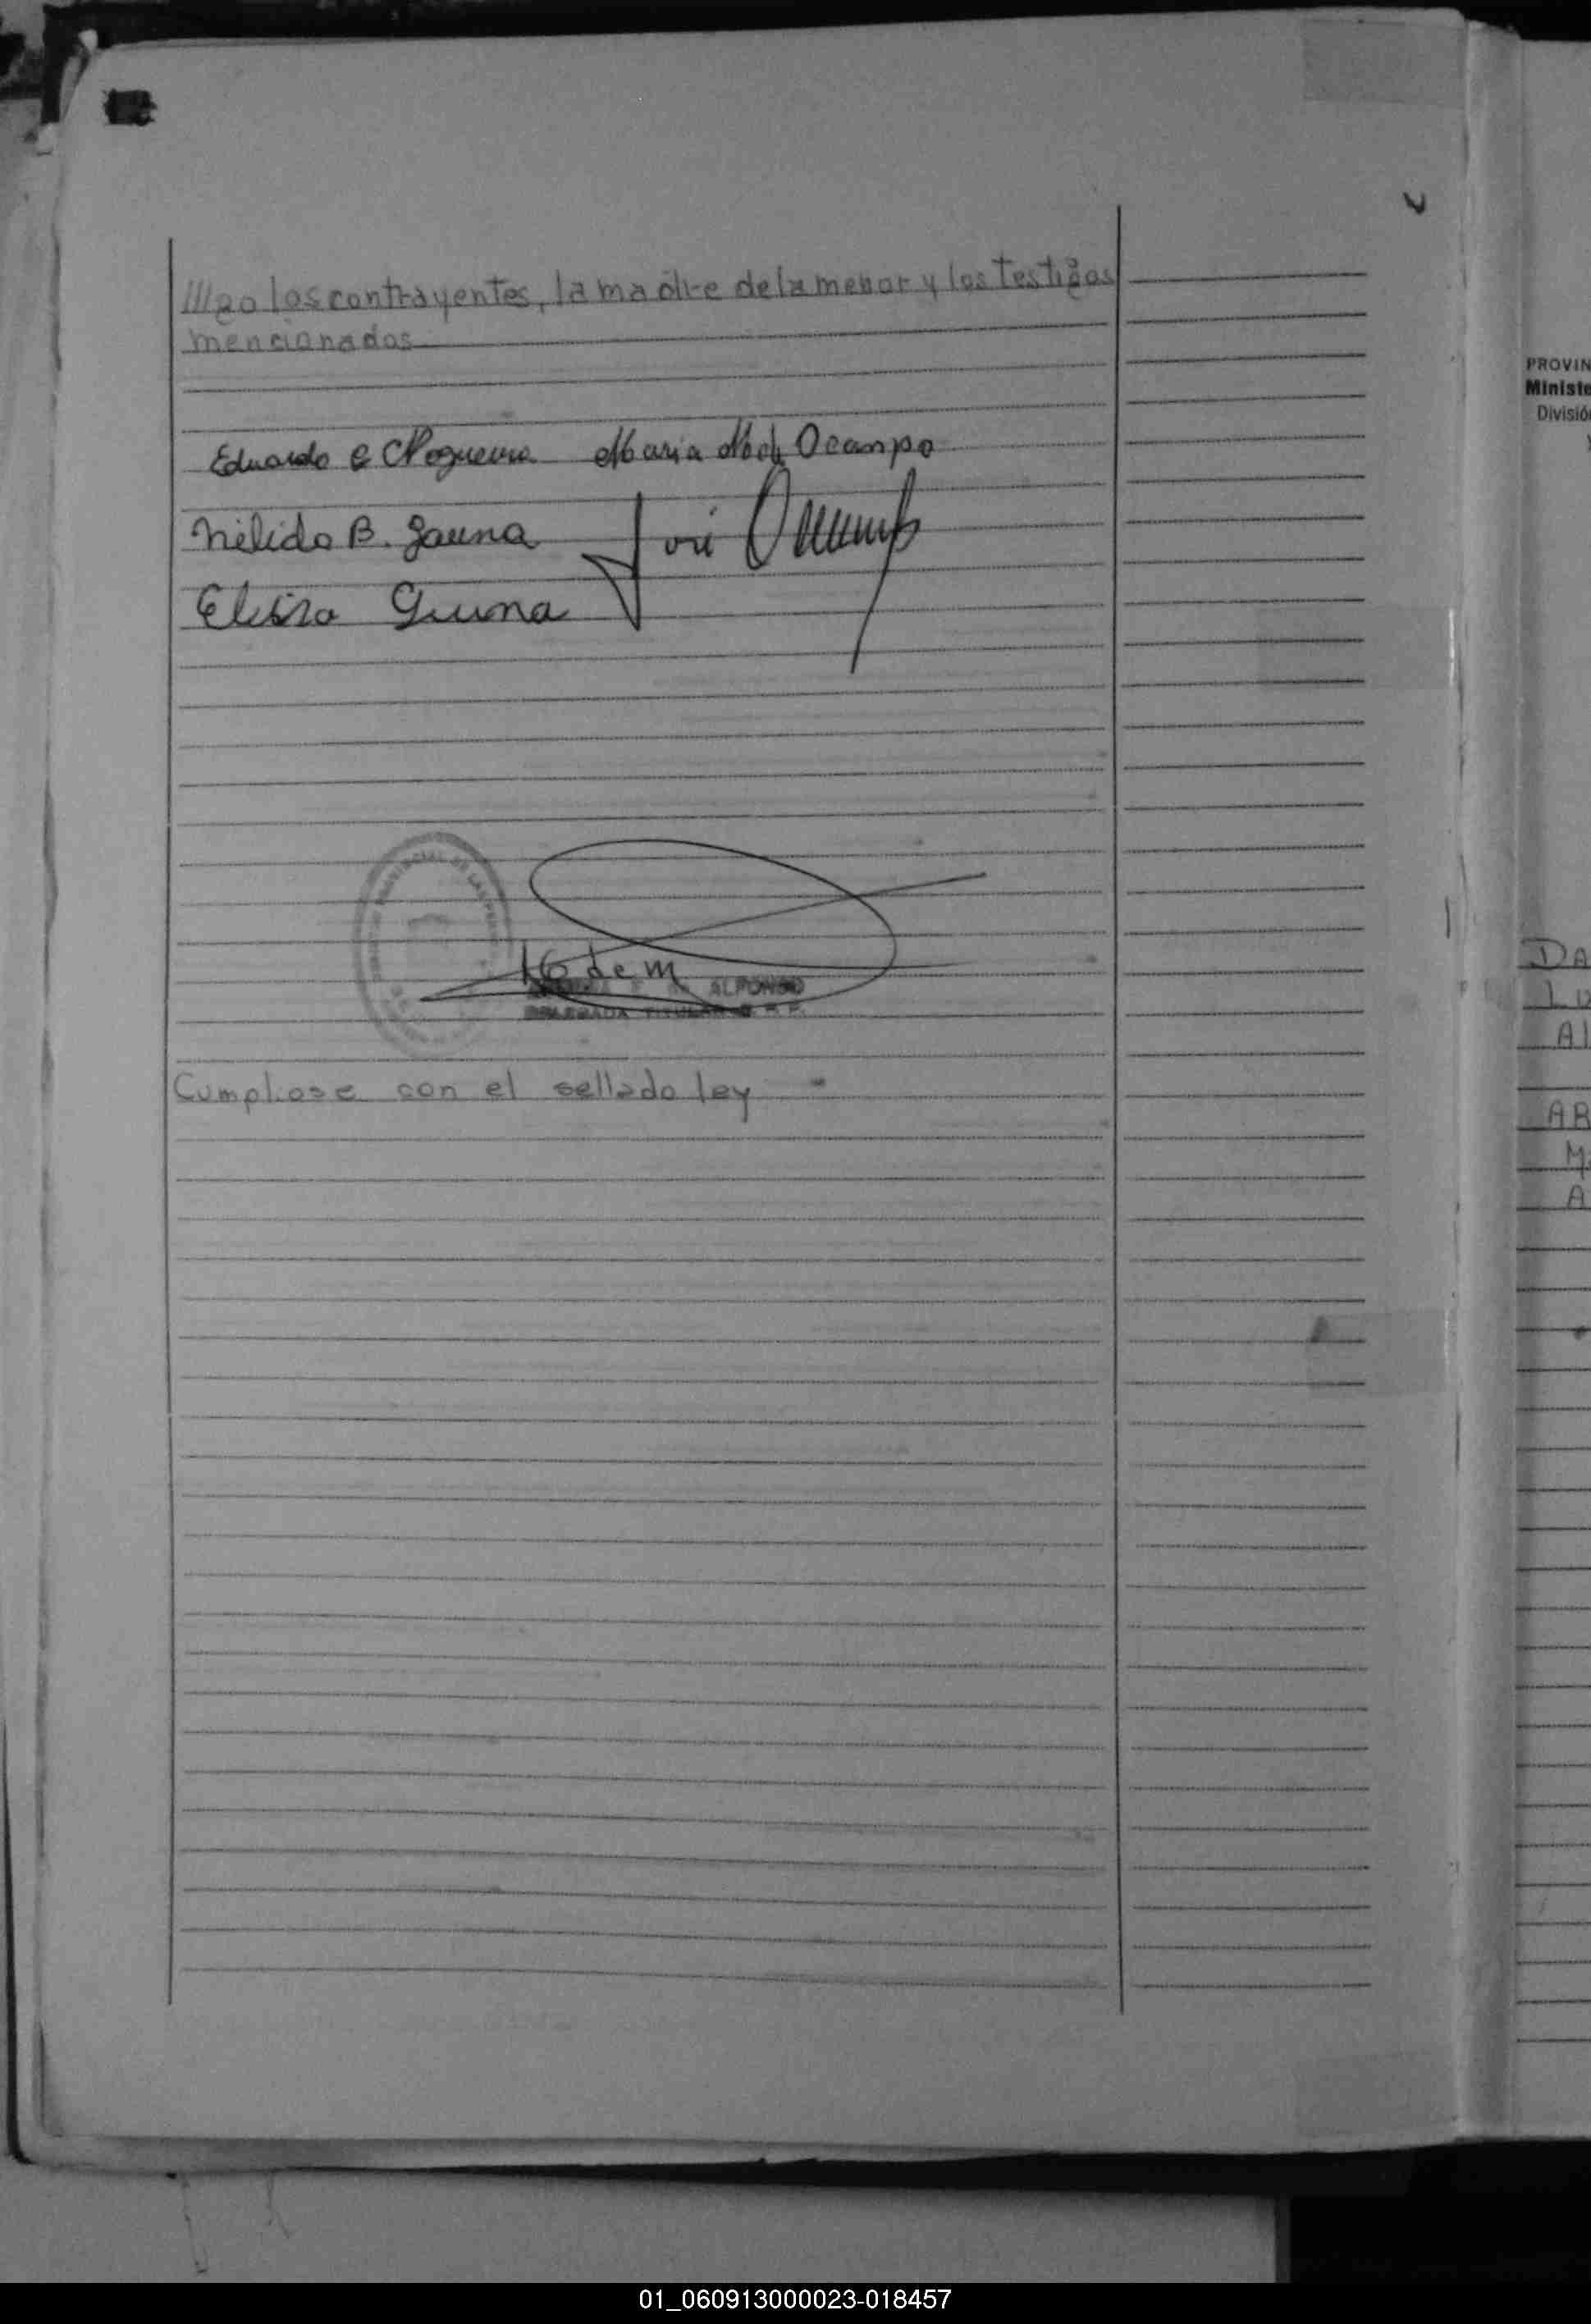 ///go los contrayentes, la madre de la menor y los testigos
mencionados
Eduardo e Nogueira Maria N de Ocampo
Nélida B. Gauna José Ocampo
Elvira Gauna
16 dem
ALFONSO
DELEGADA TITULAR
Cumpliose con el sellado ley
PROVIN
Ministe
Divisió
DA
LU
AL
AR
MA
A
01_060913000023-018457